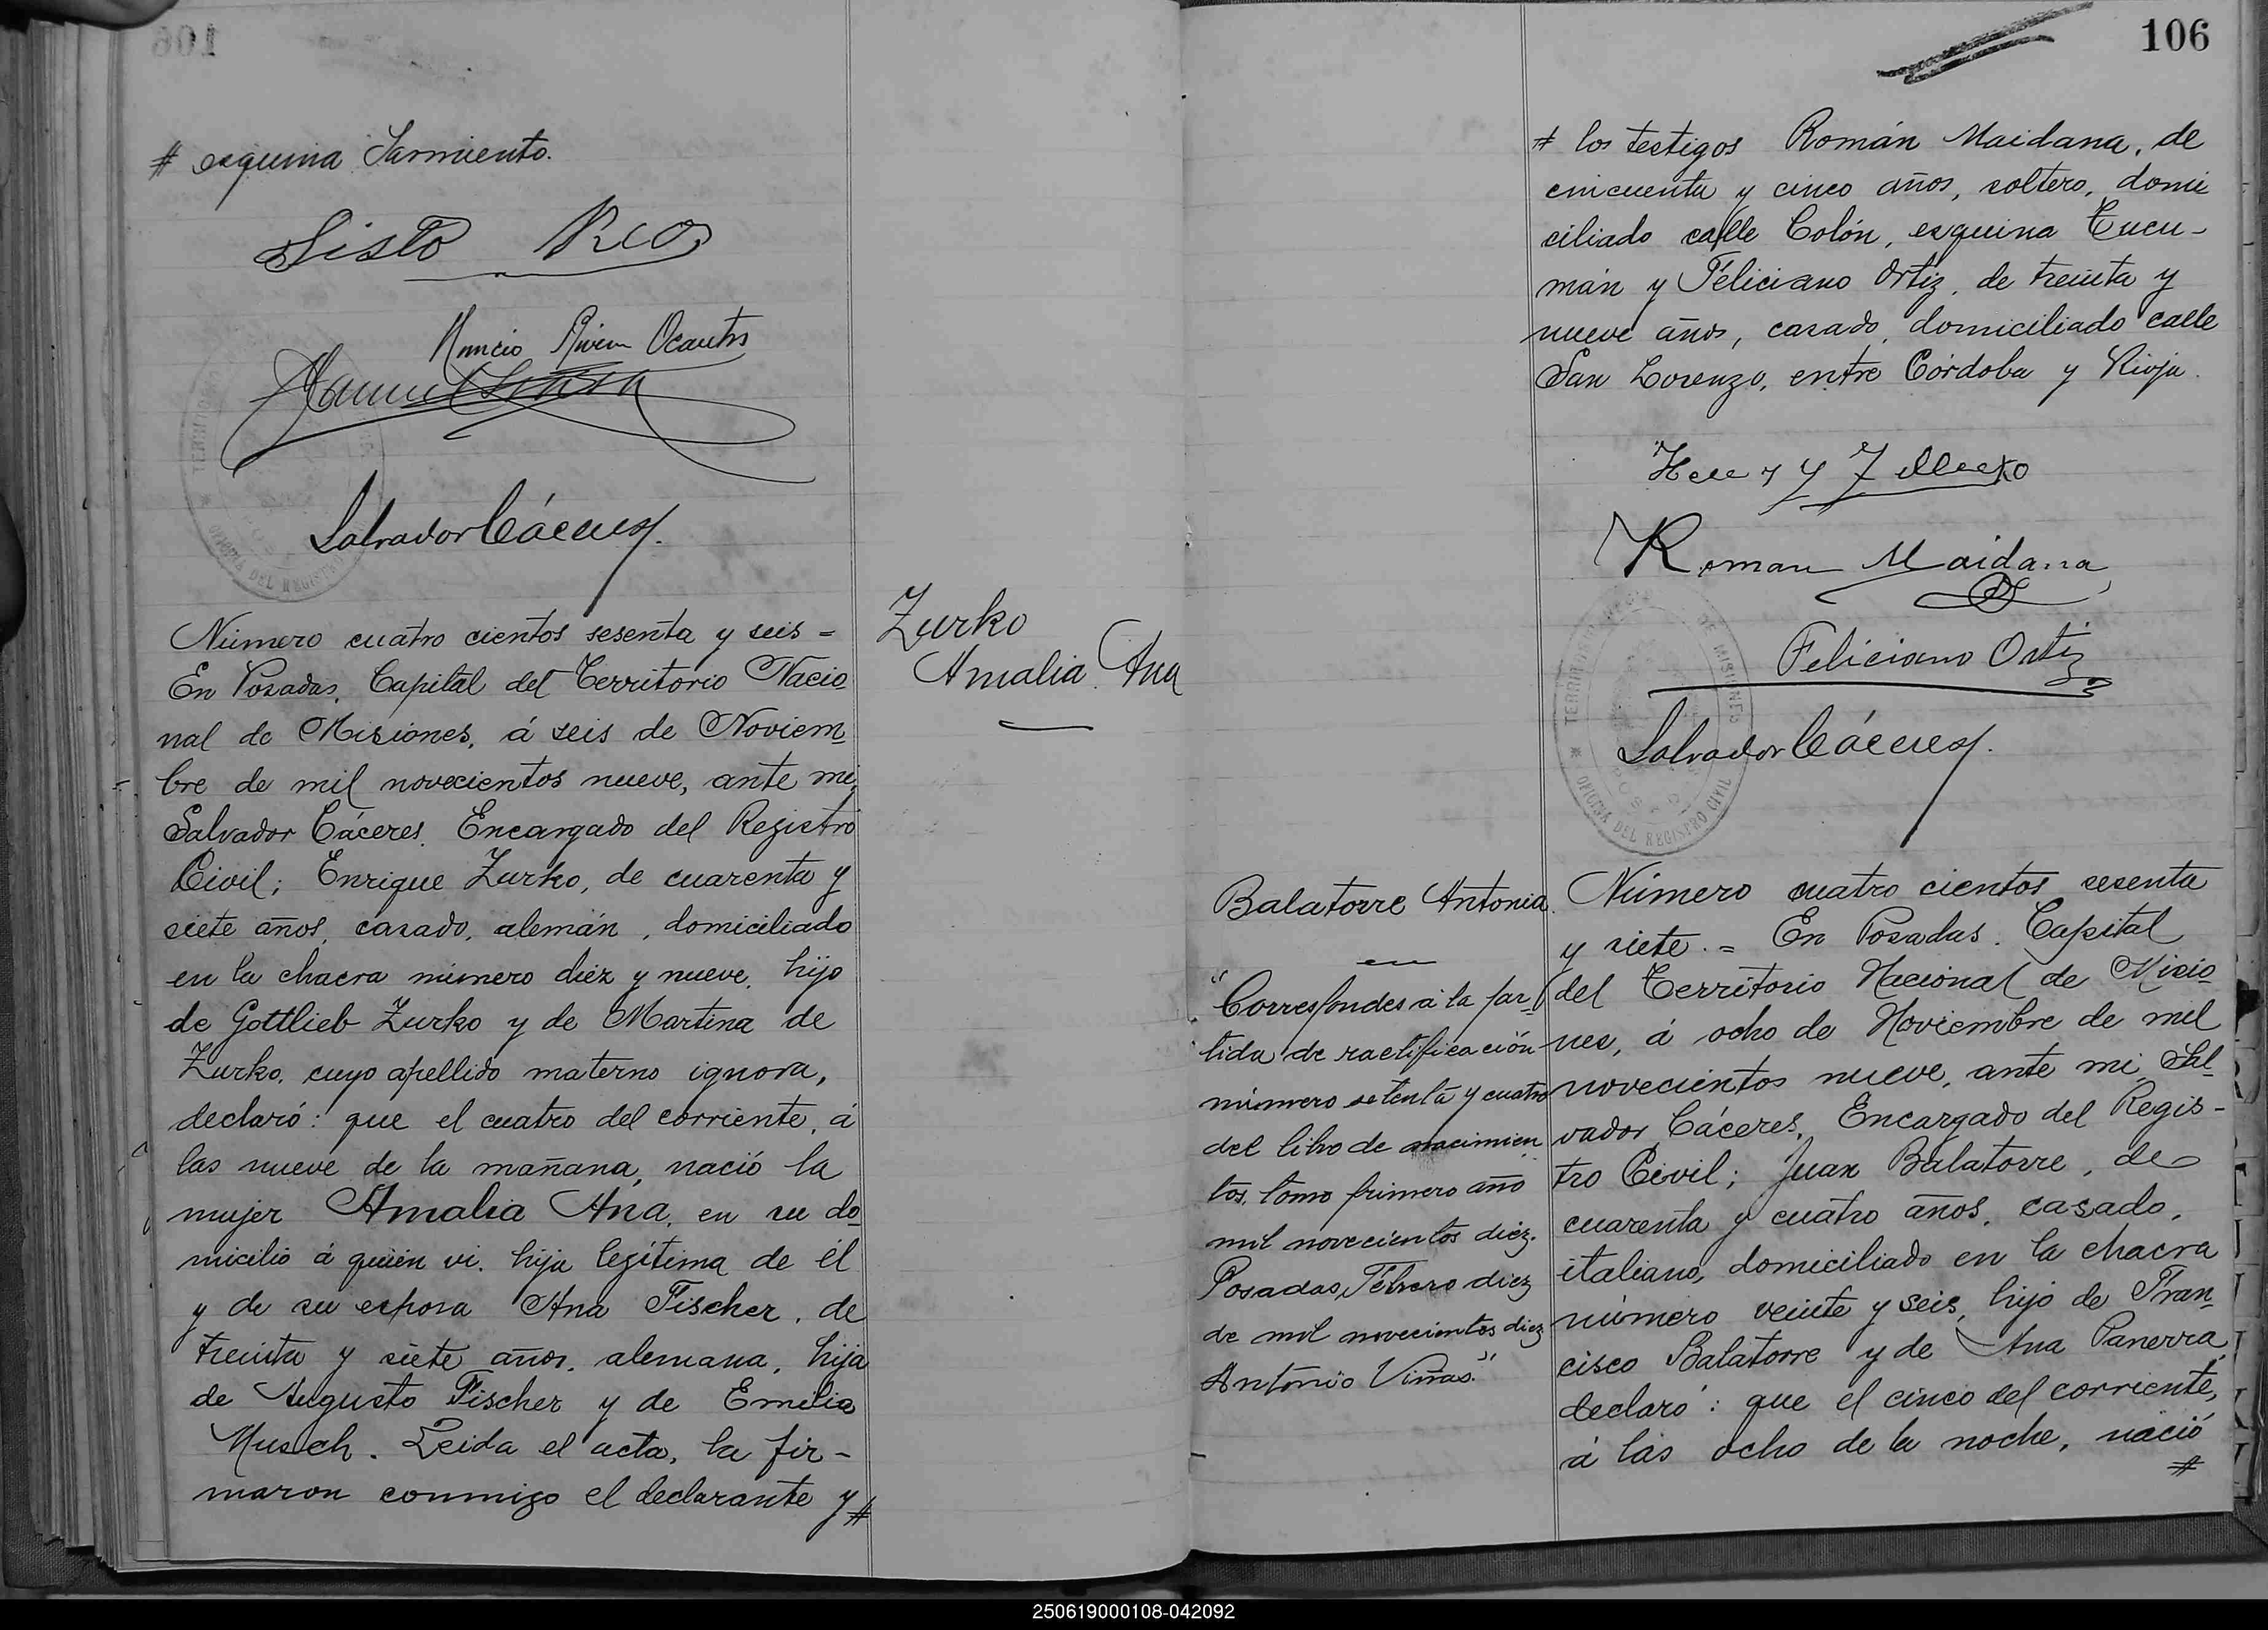 # esquina Sarmiento.
Sisto Rco
Nuncio Rivero Ocantos
Salvador Cáceres.
Número cuatro cientos sesenta y seis =
En Posadas, Capital del Territorio Nacio
nal de Misiones, á seis de Noviem
bre de mil novecientos nueve, ante mi,
Salvador Cáceres, Encargado del Registro
Civil; Enrique Zurko, de cuarenta y
siete años, casado, alemán, domiciliado
en la chacra número diez y nueve, hijo
de Gottlieb Zurko y de Martina de
Zurko, cuyo apellido materno ignora,
declaró: que el cuatro del corriente, á
las nueve de la mañana, nació la
mujer Amalia Ana, en su do
micilio á quién vi, hija legítima de él
y de su esposa Ana Fischer, de
treinta y siete años, alemana, hija
de Augusto Fischer y de Emilia
Musch. Leida el acta, la fir-
maron conmigo el declarante y #
Zurko
Amalia Ana
106
# los testigos Román Maidana, de
cincuenta y cinco años, soltero, domi
ciliado calle Colón, esquina Tucu-
mán y Féliciano Ortiz, de treinta y
nueve años, casado, domiciliado calle
San Lorenzo, entre Córdoba y Rioja.
Roman Maidana
Feliciano Ortiz
Salvador Cáceres.
TERRITORIO DE MISIONES
* OFICINA DEL REGISTRO CIVIL
Balatorre Antonia.
"Correspondes á la par
tida de ractificación
número setenta y cuatro
del libro de nacimien
tos, tomo primero año
mil novecientos diez.
Posadas, Febrero diez
de mil novecientos diez
Antonio Viñas."
Número cuatro cientos sesenta
y siete. = En Posadas, Capital
del Territorio Nacional de Misio
nes, á ocho de Noviembre de mil
novecientos nueve, ante mi, Sal
vador Cáceres, Encargado del Regis-
tro Civil; Juan Balatorre, de
cuarenta y cuatro años, casado,
italiano, domiciliado en la chacra
número veinte y seis, hijo de Fran
cisco Balatorre y de Ana Panerra,
declaró: que el cinco del corriente,
á las ocho de la noche, nació
#
250619000108-042092